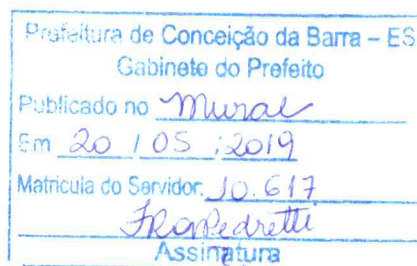 Prefeitura de Conceição da Barra – ES
Gabinete do Prefeito
Publicado no Mural
Em 20 / 05 / 2019
Matricula do Servidor: 10.617
Assinatura